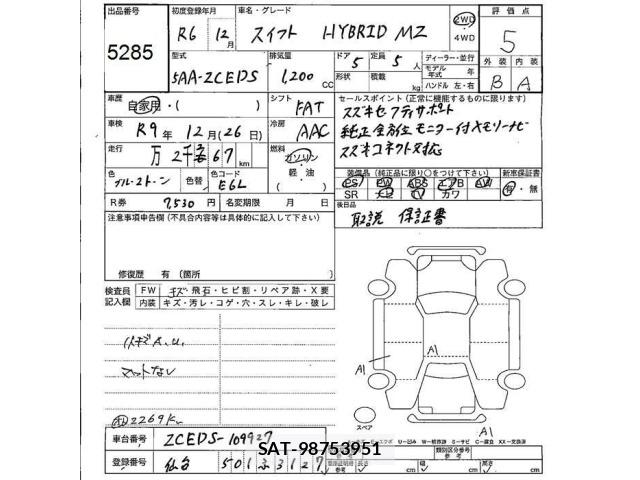 出品番号 初度登録年月 車名・グレード 評価点
5285 R6年 12月 スイフト HYBRID MZ 2WD 4WD 5
型式 排気量 ドア 定員 ディーラー・並行 外装 内装
5AA-ZCEDS 1,200 cc 5 5人 モデル年式 年
形状 積載 kg ハンドル 左・右 B A
車歴 自家用・( ) シフト FAT セールスポイント (正常に機能するものに限ります)
車検 R9年 12月(26日) 冷房 AAC スズキセーフティサポート
純正全方位モニター付メモリーナビ
走行 万2千 67 km 燃料 ガソリン 軽油 ( ) スズキコネクト対応
色 ブルー2トーン 色替 色コード E6L 装備品 (純正品に限り○をつけて下さい) 新車保証書
PS PW ABS エアB AW 有・無
SR ナビ TV カワ
R券 7,530円 名変期限 月 日 後日品
取説 保証書
注意事項申告欄 (不具合内容等は具体的に記入して下さい)
修復歴 有 (箇所 )
検査員記入欄 FW キズ・飛石・ヒビ割・リペア跡・X要
内装 キズ・汚レ・コゲ・穴・スレ・キレ・破レ
小キズA.U.
マットなし
2269K
A1
A1
A1
スペア
車台番号 ZCEDS-109927
SAT-98753951
登録番号 仙台 501 3127
類別区分番号
長さ cm 幅 cm 高さ cm